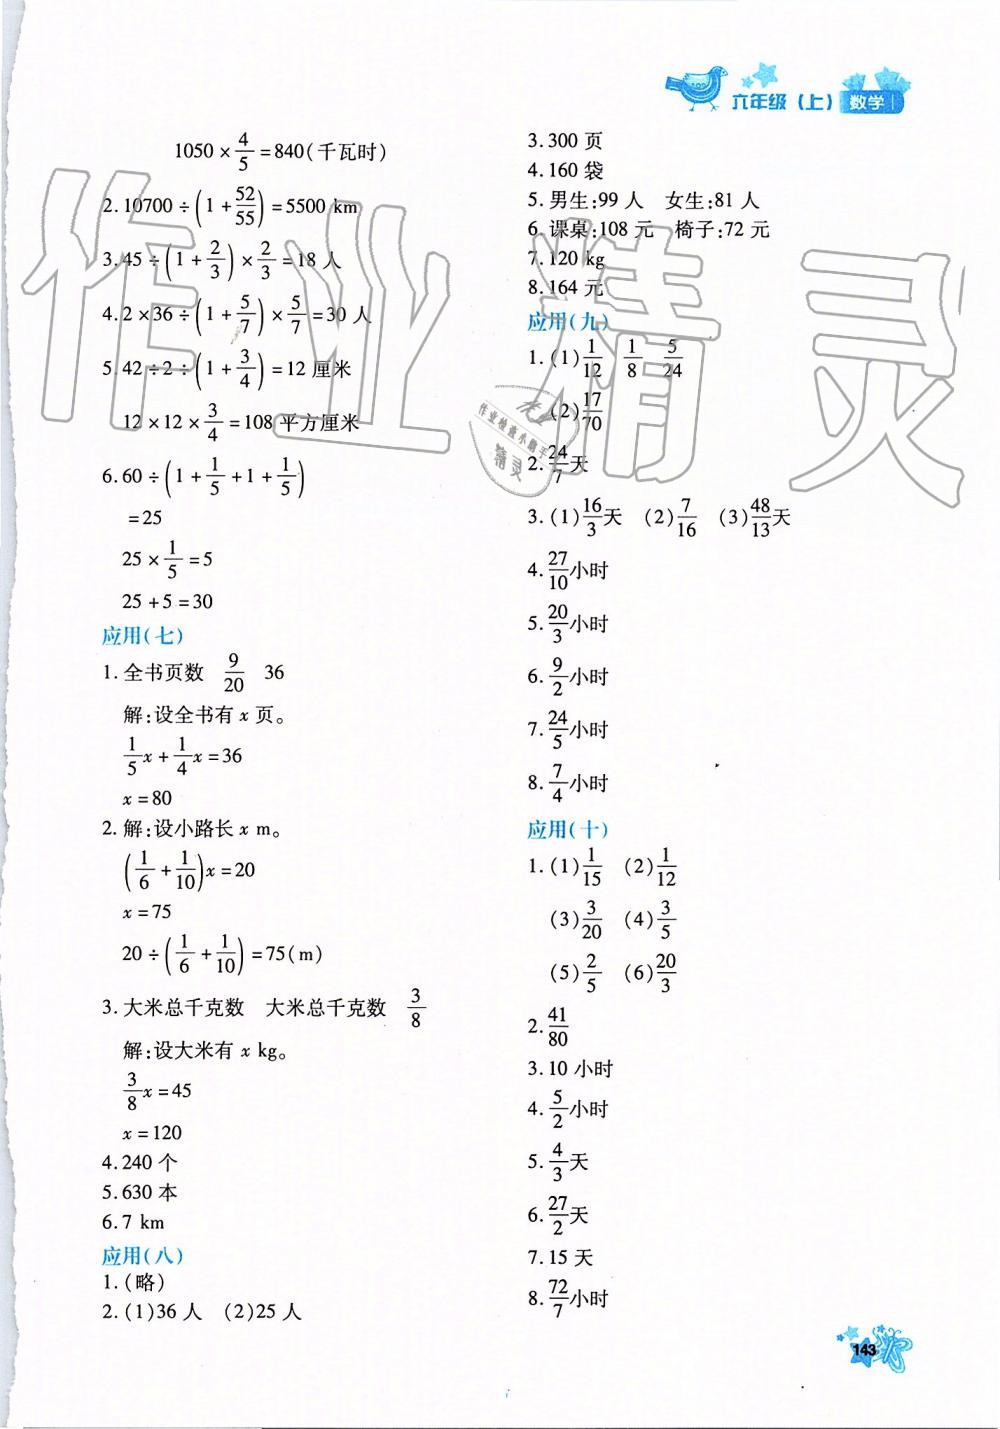 六年级(上) 数学
1050×4/5=840(千瓦时)
2.10700÷(1+52/55)=5500 km
3.45÷(1+2/3)×2/3=18 人
4.2×36÷(1+5/7)×5/7=30 人
5.42÷2÷(1+3/4)=12 厘米
12×12×3/4=108 平方厘米
6.60÷(1+1/5+1+1/5)
=25
25×1/5=5
25+5=30
应用(七)
1.全书页数 9/20 36
解:设全书有 x 页。
1/5x+1/4x=36
x=80
2.解:设小路长 x m。
(1/6+1/10)x=20
x=75
20÷(1/6+1/10)=75(m)
3.大米总千克数 大米总千克数 3/8
解:设大米有 x kg。
3/8x=45
x=120
4.240 个
5.630 本
6.7 km
应用(八)
1.(略)
2.(1)36 人 (2)25 人
3.300 页
4.160 袋
5.男生:99 人 女生:81 人
6.课桌:108 元 椅子:72 元
7.120 kg
8.164 元
应用(九)
1.(1)1/12 1/8 5/24
(2)17/70
2.24/7天
3.(1)16/3天 (2)7/16 (3)48/13天
4.27/10小时
5.20/3小时
6.9/2小时
7.24/5小时
8.7/4小时
应用(十)
1.(1)1/15 (2)1/12
(3)3/20 (4)3/5
(5)2/5 (6)20/3
2.41/80
3.10 小时
4.5/2小时
5.4/3天
6.27/2天
7.15 天
8.72/7小时
143
作业精灵
作业检查小助手
精灵